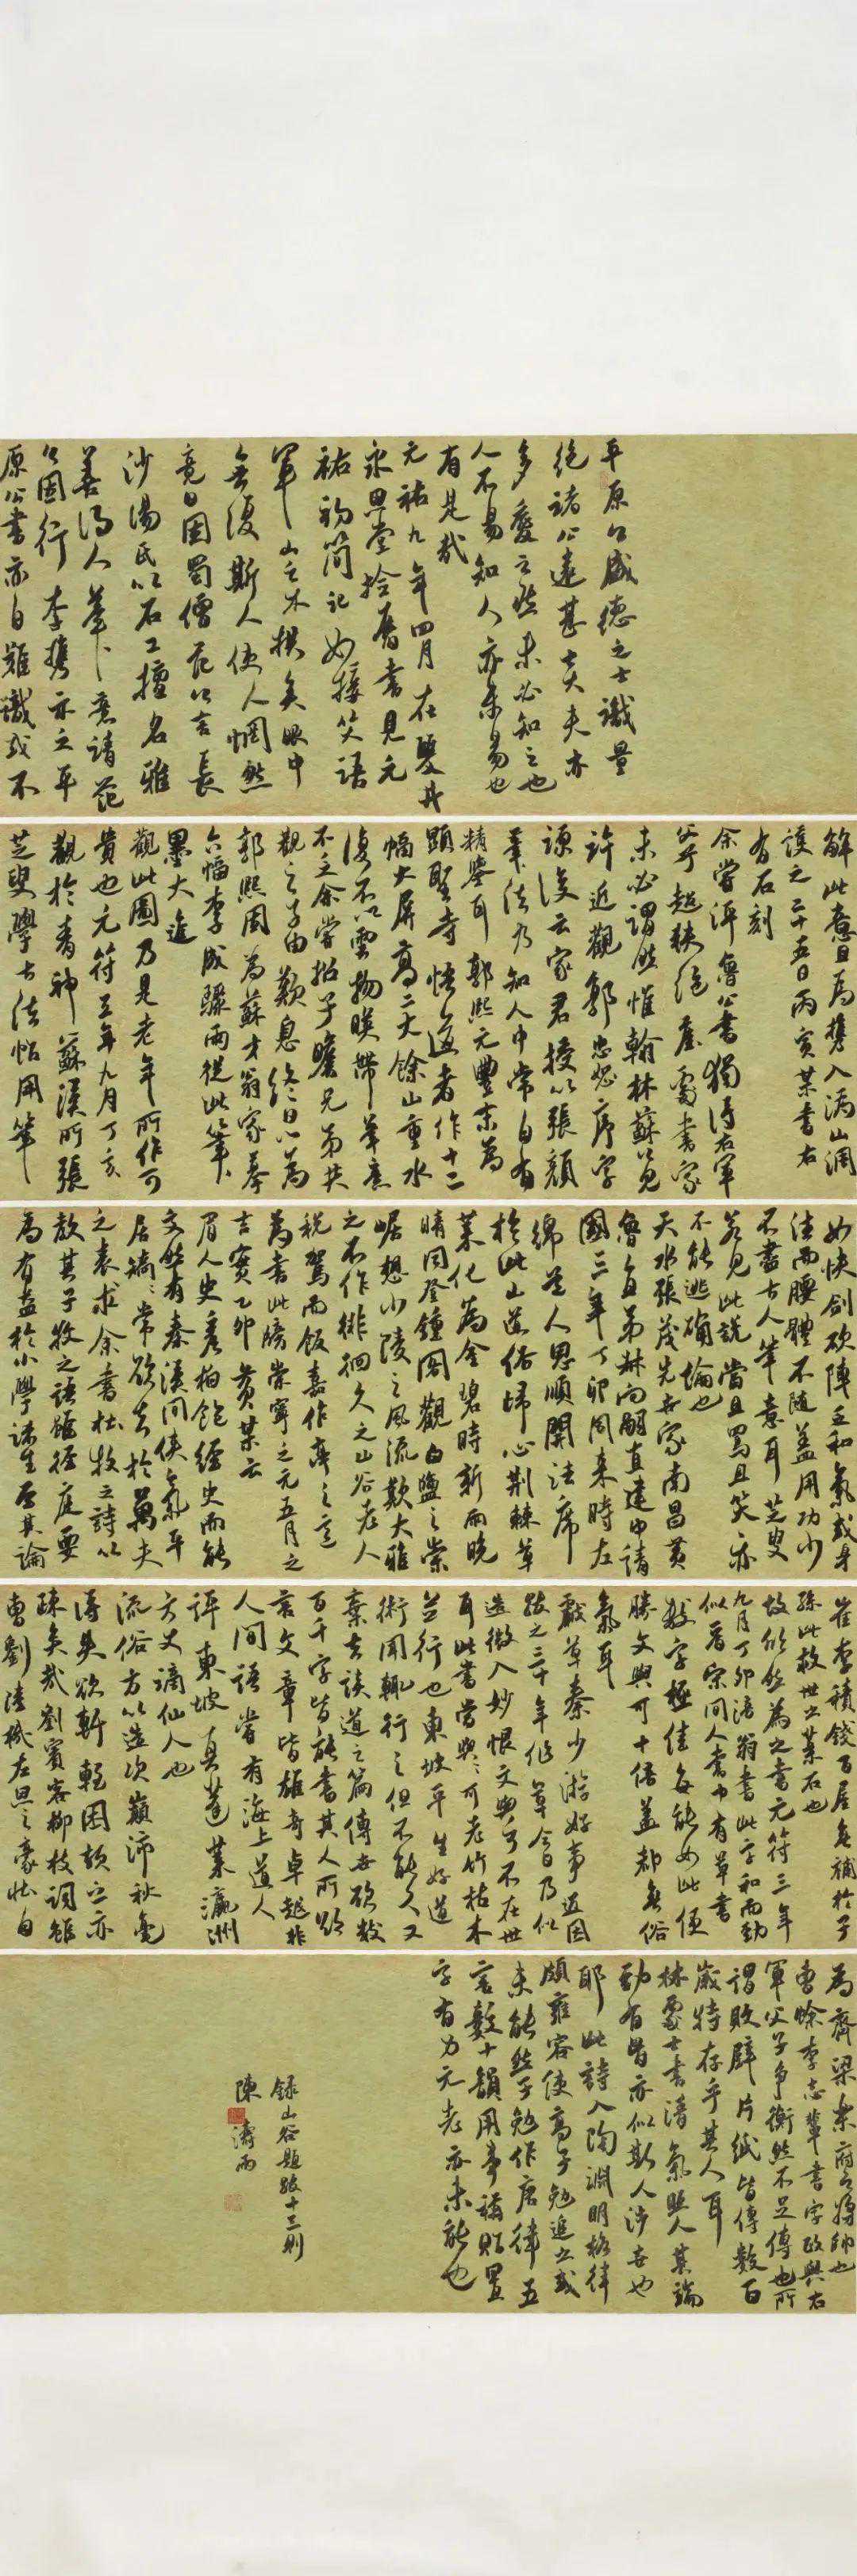 平原公盛德之士識量
絕諸公遠甚士大夫亦
多愛之然未必知之也
人不易知人亦未易也
有是哉
元祐九年四月在雙井
永思堂拾舊書見元
祐初簡記如接笑語
軍山之木拱矣眼中
無復斯人使人惘然
竟日因蜀僧范以言長
沙湯氏以石工擅名雅
善得人筆下意請范
公因行李攜示之平
原公書亦自難識或不
解此意且為攜入溈山澗
護之二十五日丙寅某書右
有石刻
余嘗評魯公書獨得右軍
父子超軼絕塵處書家
未必謂然惟翰林蘇公見
許近觀郭忠恕序字
源後云家君授以張顏
筆法乃知人中常自有
精鑒耳郭熙元豐末為
顯聖寺悟道者作十二
幅大屏高二丈餘山重水
復不以雲物映帶筆意
不乏余嘗招子瞻兄弟共
觀之子由歎息終日以為
郭熙因為蘇才翁家摹
六幅李成驟雨從此筆
墨大進
觀此圖乃是老年所作可
貴也元符三年九月丁亥
觀於青神蘇漢侯所張
芝叟學士法帖用筆
如快劍斫陣五和氣或身
法而腰體不隨蓋用功少
不盡古人筆意耳芝叟
若見此說當且罵且笑亦
不能逃確論也
天水張茂先世家南昌黃
魯直弟叔向嗣直建中靖
國三年丁卯同來時左
綿道人思順開法席
於此山道俗歸心荊棘草
萊化為金碧時新雨晚
晴同登鍾閣觀白鹽之崇
崛想少陵之風流歎大雅
之不作徘徊久之山谷老人
稅駕而飯嘉作齋之意
為書此牓崇寧之元五月之
吉實乙卯黃某云
眉人史彥柏飽經史而能
文然有秦漢間俠氣平
居犄犄常欲去於萬夫
之表求余書杜牧之詩以
教其子牧之語雖徑庭要
為有益於小學諸生至其論
崔李積錢百屋無補於子
孫此救世之藥石也
故欣然為之書元符三年
九月丁卯涪翁書此字和而勁
似晉宋間人書中有草書
數字極佳每能如此便
勝文與可十倍蓋都無俗
氣耳
戲草秦少游好事近因
跋之三十年作草今日乃似
造微入妙恨文與可不在世
耳此書當與與可老竹枯木
並行也東坡平生好道
術聞輒行之但不能久又
棄去談道之篇傳世欲數
百千字皆能書其人所欲
言文章皆雄奇卓越非
人間語嘗有海上道人
評東坡真蓬萊瀛洲
方丈謫仙人也
流俗方以造次顛沛秋毫
得失欲軒輊困頓之亦
疎矣哉劉賓客柳枝詞雖
曹劉陸機左思之豪壯自
為齊梁樂府之將帥也
曹蜍李志輩書字政與右
軍父子爭衡然不足傳也所
謂敗壁片紙皆傳數百
歲特存乎其人耳
林處士書清氣照人其端
勁有骨亦似斯人涉世也
耶此詩入陶淵明格律
頗雍容使高子勉追之或
未能然子勉作唐律五
言數十韻用事穩貼置
字有力元老亦未能也
錄山谷題跋十三則
陳濤雨